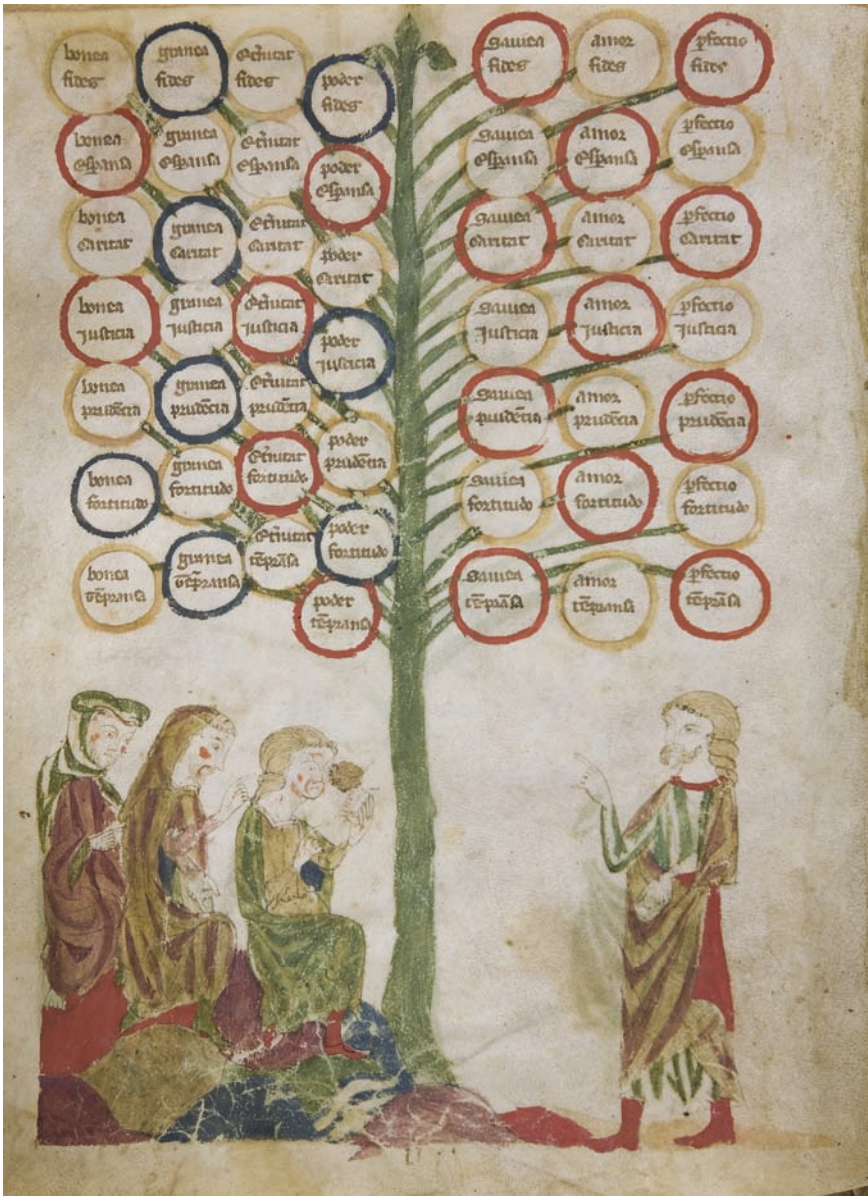 bonea
fides
granea
fides
et'nitat
fides
poder
fides
sauiea
fides
amor
fides
ꝑfectio
fides
bonea
esꝑansa
granea
esꝑansa
et'nitat
esꝑansa
poder
esꝑansa
sauiea
esꝑansa
amor
esꝑansa
ꝑfectio
esꝑansa
bonea
caritat
granea
caritat
et'nitat
caritat
poder
caritat
sauiea
caritat
amor
caritat
ꝑfectio
caritat
bonea
iusticia
granea
iusticia
et'nitat
iusticia
poder
iusticia
sauiea
iusticia
amor
iusticia
ꝑfectio
iusticia
bonea
prudēcia
granea
prudēcia
et'nitat
prudēcia
poder
prudēcia
sauiea
prudēcia
amor
prudēcia
ꝑfectio
prudēcia
bonea
fortitudo
granea
fortitudo
et'nitat
fortitudo
poder
fortitudo
sauiea
fortitudo
amor
fortitudo
ꝑfectio
fortitudo
bonea
tēpransa
granea
tēpransa
et'nitat
tēpransa
poder
tēpransa
sauiea
tēprāsa
amor
tēpransa
ꝑfectio
tēprāsa